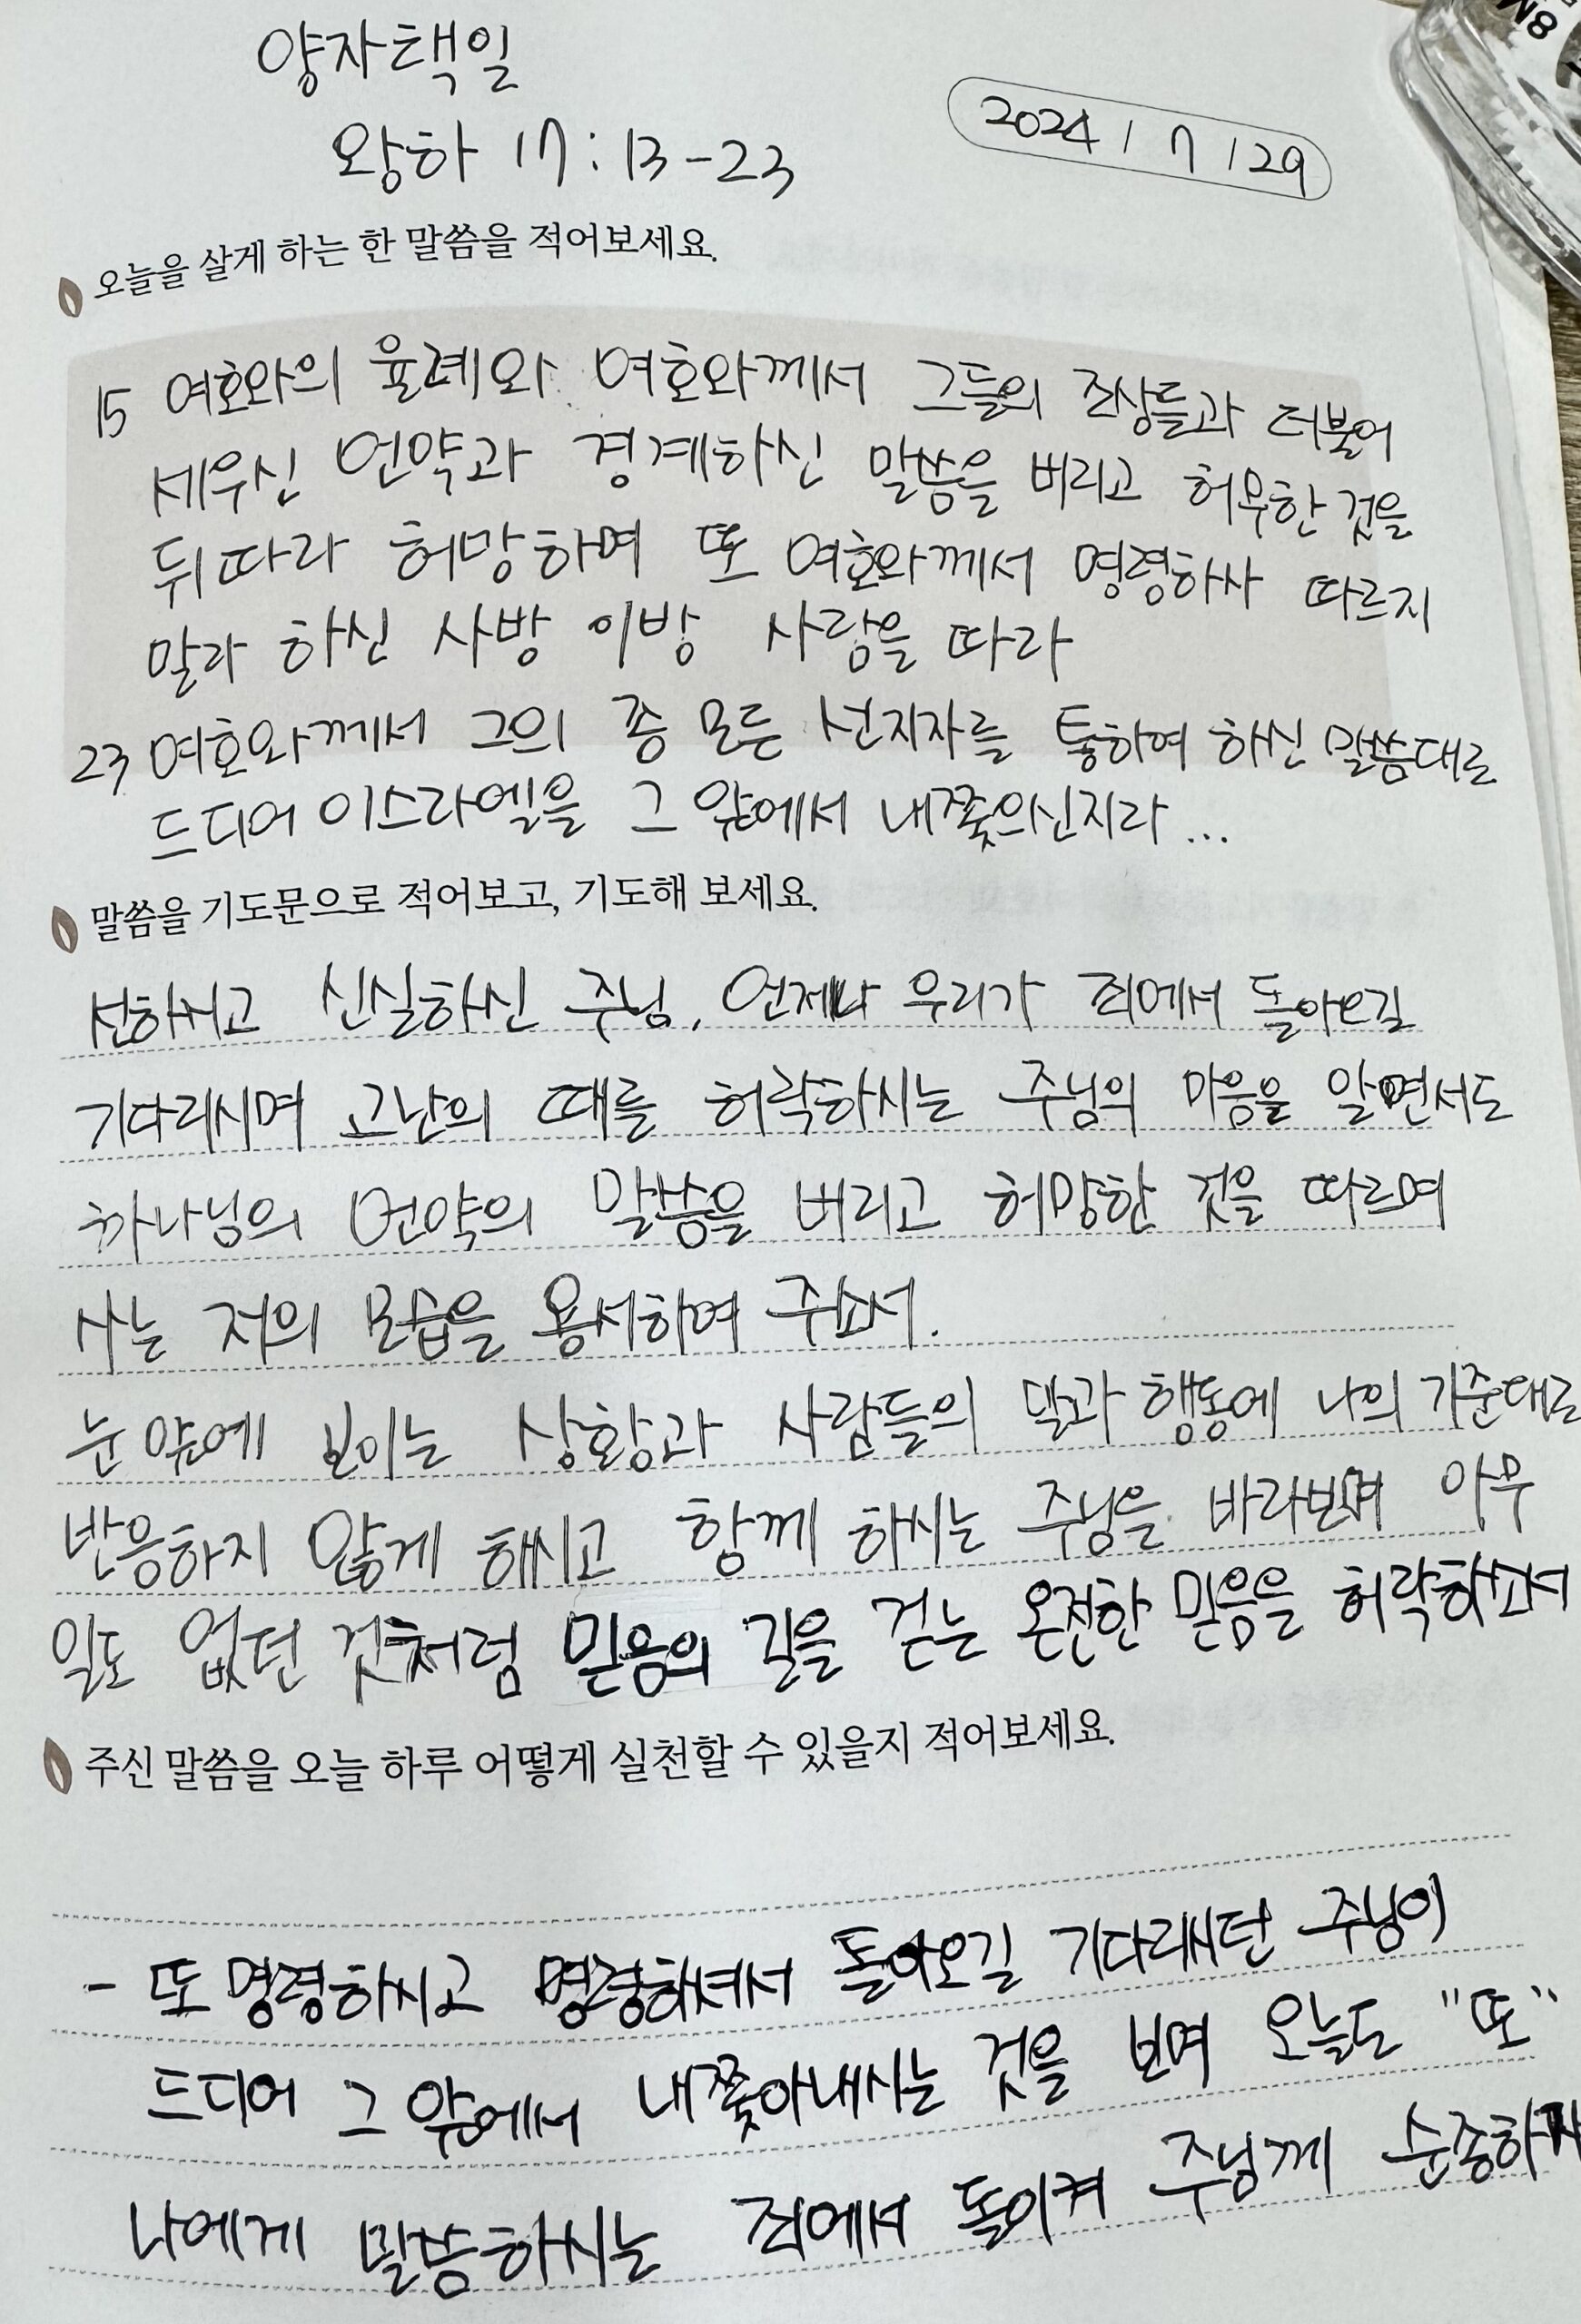 양자택일
왕하 17:13-23
2024/7/29
오늘을 살게 하는 한 말씀을 적어보세요.
15 여호와의 율례와 여호와께서 그들의 조상들과 더불어
세우신 언약과 경계하신 말씀을 버리고 허무한 것을
뒤따라 허망하며 또 여호와께서 명령하사 따르지
말라 하신 사방 이방 사람을 따라
23 여호와께서 그의 종 모든 선지자를 통하여 하신 말씀대로
드디어 이스라엘을 그 앞에서 내쫓으신지라...
말씀을 기도문으로 적어보고, 기도해 보세요.
선하시고 신실하신 주님, 언제나 우리가 죄에서 돌아오길
기다리시며 고난의 때를 허락하시는 주님의 마음을 알면서도
하나님의 언약의 말씀을 버리고 허망한 것을 따르며
사는 저의 모습을 용서하여 주소서.
눈 앞에 보이는 상황과 사람들의 말과 행동에 나의 기준대로
반응하지 않게 하시고 함께 하시는 주님을 바라보며 아무
일도 없던 것처럼 믿음의 길을 걷는 온전한 믿음을 허락하소서
주신 말씀을 오늘 하루 어떻게 실천할 수 있을지 적어보세요.
- 또 명령하시고 명령하셔서 돌아오길 기다리시던 주님이
드디어 그 앞에서 내쫓아내시는 것을 보며 오늘도 "또"
나에게 말씀하시는 죄에서 돌이켜 주님께 순종하자